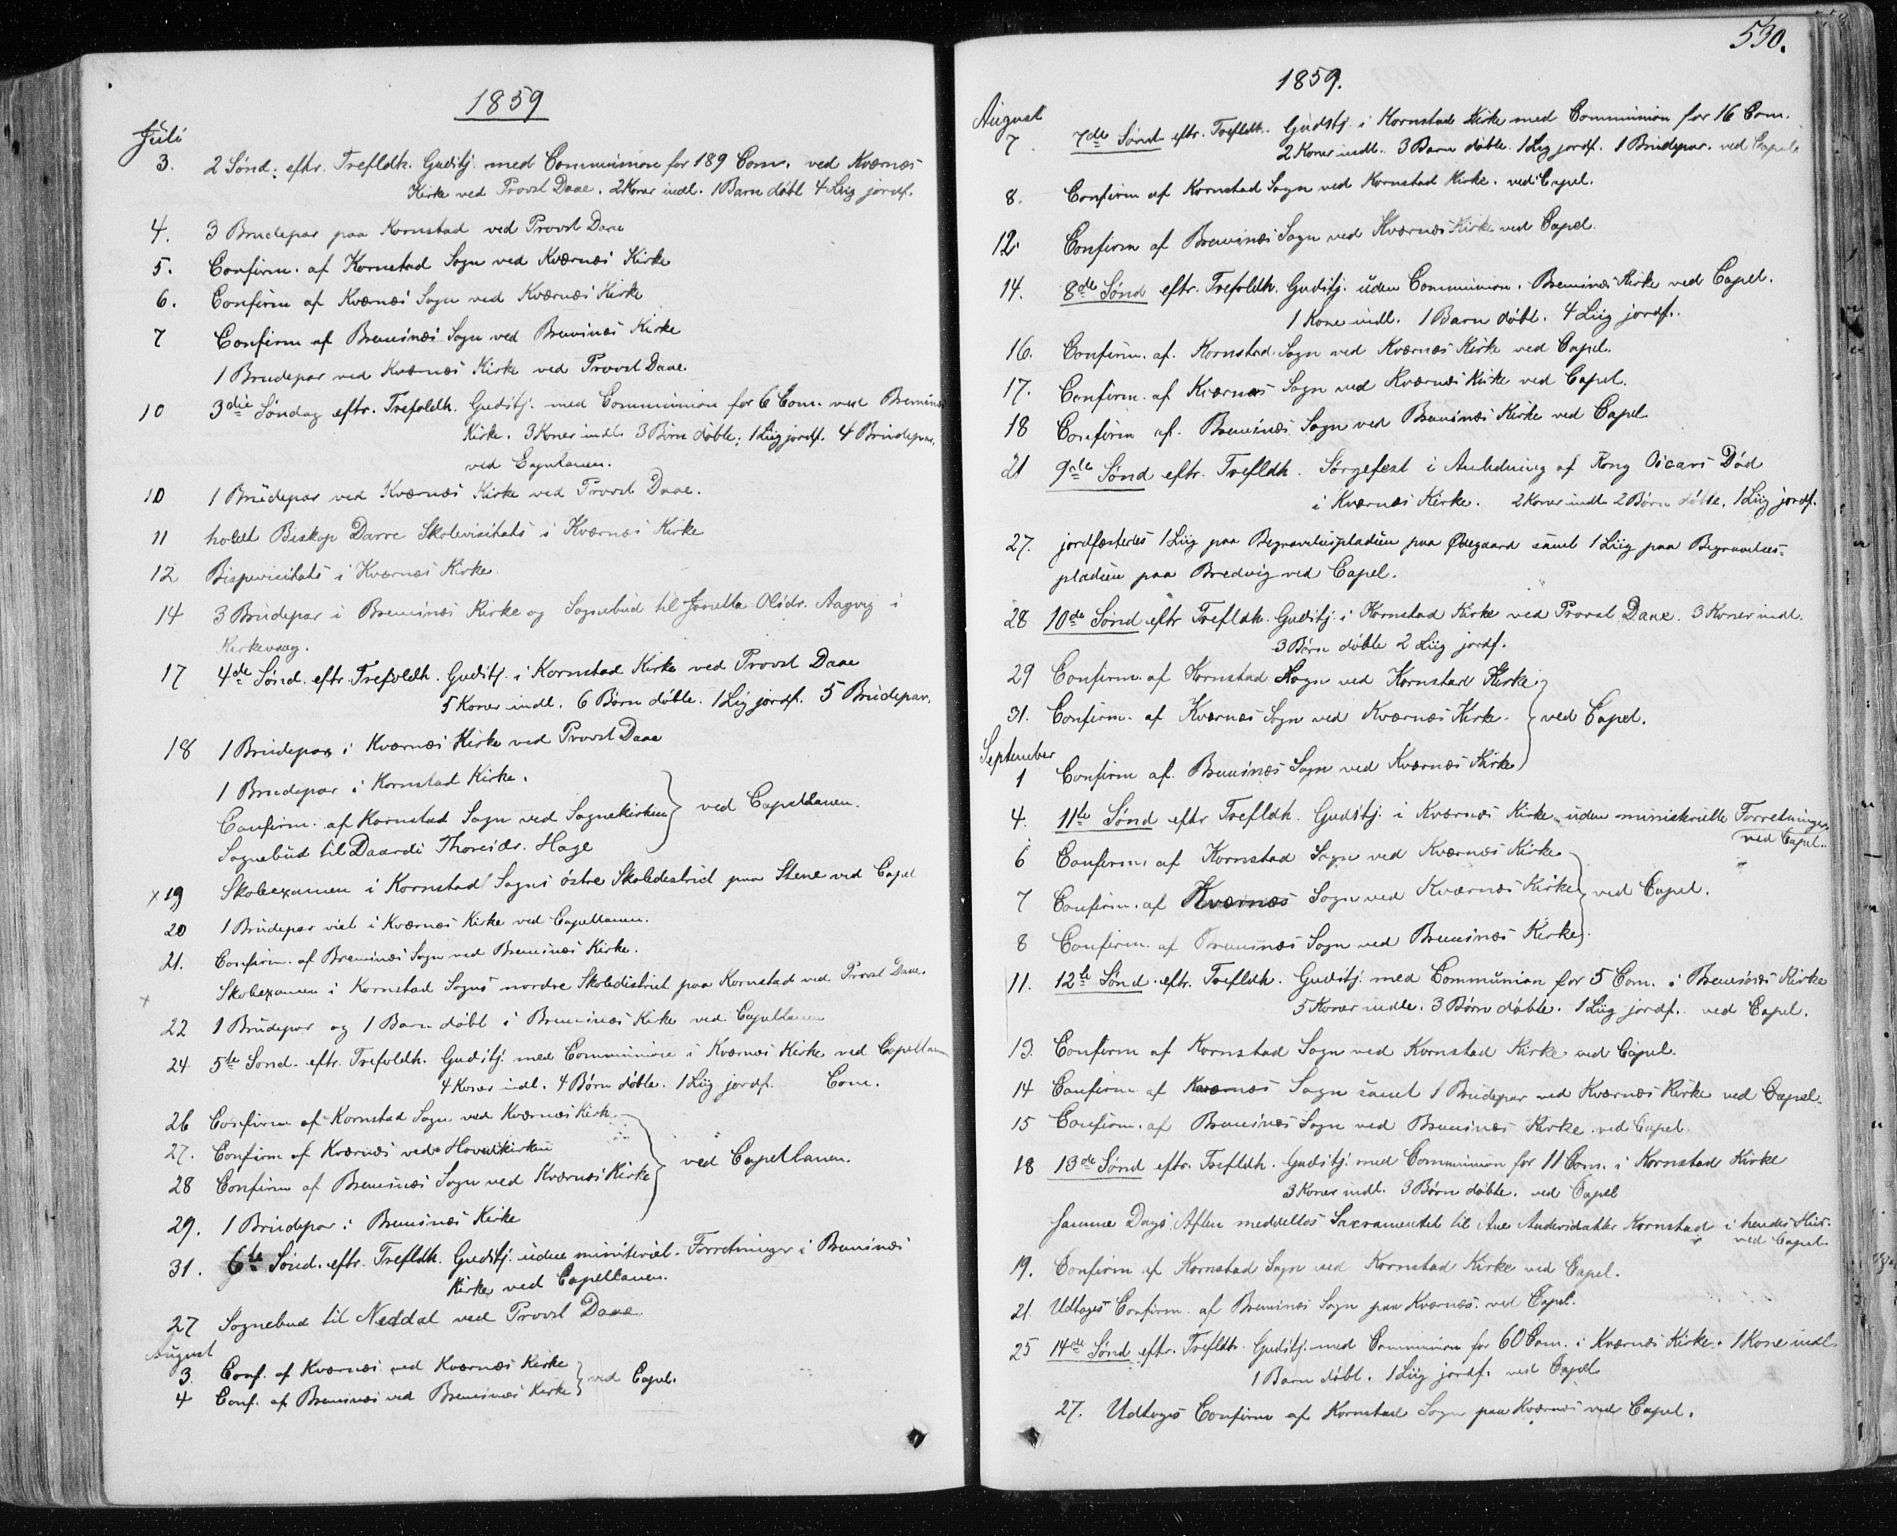 1859
Juli
3. 2 Sønd: eftr. Trefldh. Gudstj. med Communion for 189 Com. ved Kværnæs
Kirke ved Provst Daae. 2 Koner indl. 1 Barn døbt 4 Liig jordf.
4. 3 Brudepar paa Kornstad ved Provst Daae
5. Confirm. af Kornstad Sogn ved Kværnæs Kirke
6. Confirm af Kværnæs Sogn ved Kværnæs Kirke
7 Confirm af Bremsnæs Sogn ved Bremsnæs Kirke
1 Brudepar ved Kværnæs Kirke ved Provst Daae.
10 3die Søndag eftr. Trefoldh. Gudstj. med Communion for 6 Com. ved Bremsnæs
Kirke. 3 Koner indl. 3 Børn døbte; 1 Liig jordf. 4 Brudepar.
ved Capellanen.
10 1 Brudepar ved Kværnæs Kirke ved Provst Daae.
11 holdt Biskop Darre Skolevisitats i Kværnæs Kirke
12 Bispevisitats i Kværnæs Kirke.
14 3 Brudepar i Bremsnæs Kirke og Sognebud til Jonetta Olsdr. Aagvig i
Kirkevaag.
17 4de Sønd. eftr. Trefoldh. Gudstj. i Kornstad Kirke ved Provst Daae
5 Koner indl. 6 Børn døbte. 1 Lig jordf. 5 Brudepar.
18 1 Brudepar i Kværnæs Kirke ved Provst Daae
1 Brudepar i Kornstad Kirke.
Confirm. af Kornstad Sogn ved Sognekirken } ved Capellanen.
Sognebud til Daardi Thorsdr. Hage
x 19 Skoleexamen i Kornstad Sogns østre Skoledistrict paa Stene ved Capel
20 1 Brudepar viet i Kværnæs Kirke ved Capellanen.
21. Confirm. af Bremsnæs Sogn ved Bremsnæs Kirke.
x Skoleexamen i Kornstad Sogns nordre Skoledistrict paa Kornstad ved Provst Daae.
22 1 Brudepar og 1 Barn døbt i Bremsnæs Kirke ved Capellanen
24 5te Sond. eftr. Trefoldh. Gudstj. med Communion i Kværnæs Kirke ved Capellanen
4 Koner indl. 4 Børn døbte. 1 Liig jordf. Com.
26 Confirm af Kornstad Sogn ved Kværnæs Kirk.
27. Confirm af Kværnæs ved Hovedkirken } ved Capellanen.
28 Confirm af Bremsnæs Sogn ved Kværnæs Kirke
29. 1 Brudepar i Bremsnæs Kirke
31. 6te Sønd. eftr. Trefldh. Gudstj. uden ministeriel. Forretninger i Bremsnæs
Kirke ved Capellanen.
27 Sognebud til Neddal ved Provst Daae
August
3. Conf. af Kværnæs ved Kværnæs Kirke } ved Capel.
4 Conf. af Bremsnæs ved Bremsnæs Kirke
530.
1859.
August
7 7de Sønd eftr. Trefldh. Gudstj. i Kornstad Kirke med Communion for 16 Com.
2 Koner indl. 3 Barn døbte 1 Lig jordf. 1 Brudepar. ved Capel.
8. Confirm af Kornstad Sogn ved Kornstad Kirke. ved Capel.
12. Confirm af Bremsnæs Sogn ved Kværnæs Kirke ved Capel.
14. 8de Sønd eftr. Trefoldh. Gudstj. uden Communion. Bremsnæs Kirke ved Capel.
1 Kone indl. 1 Barn døbt. 4 Liig jordf.
16. Confirm. af. Kornstad Sogn ved Kværnæs Kirke ved Capel.
17. Confirm. af Kværnæs Sogn ved Kværnæs Kirke ved Capel.
18 Confirm af. Bremsnæs Sogn ved Bremsnæs Kirke ved Capel
21 9de Sønd eftr. Trefldh. Sørgefest i Anledning af Kong Oscars Død
i Kværnæs Kirke. 2 Koner indl. 2 Børn døbte. 1 Liig jordf.
27. jordfæstedes 1 Liig paa Begravelsespladsen paa Ødegaard samt 1 Liig paa Begravelses-
pladsen paa Bredvig ved Capel.
28 10de Sønd eftr Trefldh. Gudstj. i Kornstad Kirke ved Provst Daae. 3 Koner indl.
3 Børn døbte 2 Liig jordf.
29 Confirm. af Kornstad Sogn ved Kornstad Kirke.
31. Confirm. af Kværnæs Sogn ved Kværnæs Kirk. } ved Capel.
September
1 Confirm af. Bremsnæs Sogn ved Kværnæs Kirke
4. 11te Sønd eftr Trefldh. Gudstj. i Kværnæs Kirke, uden ministrielle Forretninger
ved Capel.
6 Confirm. af Kornstad Sogn ved Kværnæs Kirke
7 Confirm. af Kværnæs Sogn ved Kværnæs Kirke } ved Capel.
8 Confirm. af Bremsnæs Sogn ved Bremsnæs Kirke
11. 12te Sønd. eftr. Trefldh. Gudstj. med Communion for 5 Com. i Bremsnæs Kirke
5 Koner indle. 3 Børn døbte. 1 Liig jordf. ved Capel.
13. Confirm af Kornstad Sogn ved Kornstad Kirke ved Capel.
14 Confirm. af Kværnæs Sogn samt 1 Brudepar ved Kværnæs Kirke ved Capel.
15 Confirm. af Bremsnæs Sogn ved Bremsnæs Kirke ved Capel.
18 13de Sønd eftr. Trefldh. Gudstj. med Communion for 11 Com. i Kornstad Kirke
3 Koner indl. 3 Børn døbte. ved Capel
Samme Dags Aften meddeltes Sacramentet til Ane Andersdatter Kornstad i hendes Huus.
ved Capel.
19. Confirm af Kornstad Sogn ved Kornstad Kirke ved Capel.
21. Udtoges Confirm. af Bremsnæs Sogn paa Kværnæs. ved Capel.
25 14de Sønd eftr. Trefldh. Gudstj. med Communion for 60 Com. i Kværnæs Kirke. 1 Kone indl.
1 Barn døbt. 1 Liig jordf. ved Capel
27. Udtoges Confirm af Kornstad Sogn paa Kværnæs ved Capel.